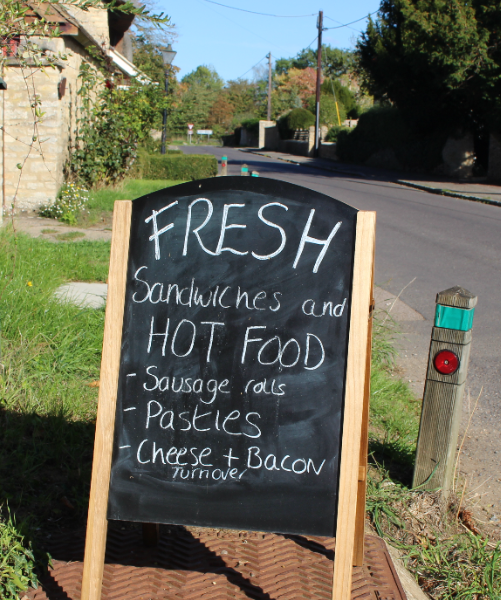 FRESH
Sandwiches and
HOT FOOD
- Sausage rolls
- Pasties
- Cheese + Bacon
Turnover